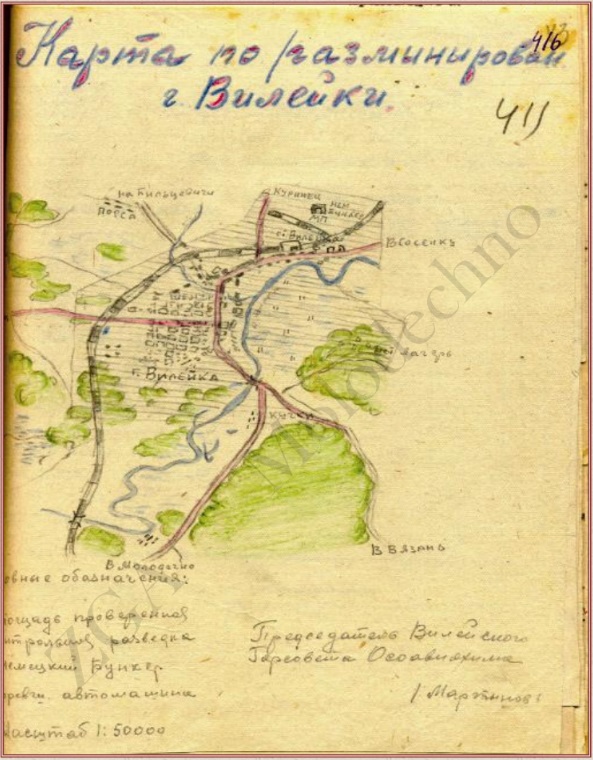 416
Карта по разминирован
г. Вилейки.
411
на Вильцевичи
ПОРСА
КУРИНЕЦ
НЕМ
МП
ст. ВИЛЕЙКА
В СОСЕНКЪ
г. ВИЛЕЙКА
КУЧКИ
лагерь
В Молодечно
В ВЯЗАНЬ
овные обозначения:
лощадь проверенная
нтрольная разведка
Немецкий Бункер
автомашина
Масштаб 1:50000
Председатель Вилейского
Горсовета Осоавиахима
/Мартинов
ZGA Molodechno